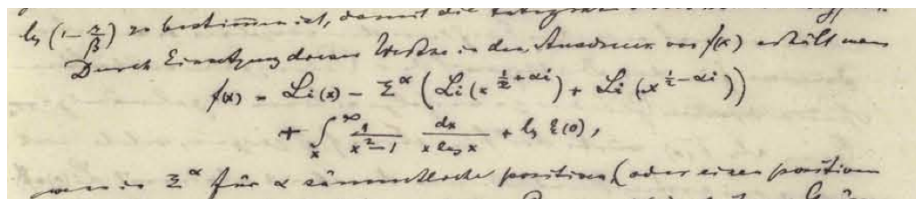 lg (1 – α/β) zu bestimmen ist, damit die
Durch Einsetzung dieser Werthe in den Ausdruck von f(x) erhält man
f(x) = Li(x) – Σ^α (Li(x^{½+αi}) + Li(x^{½–αi}))
+ ∫_x^∞ 1/(x²–1) dx/(x log x) + lg ξ(0),
wenn in Σ^α für α sämmtliche positiven (oder einen positiven